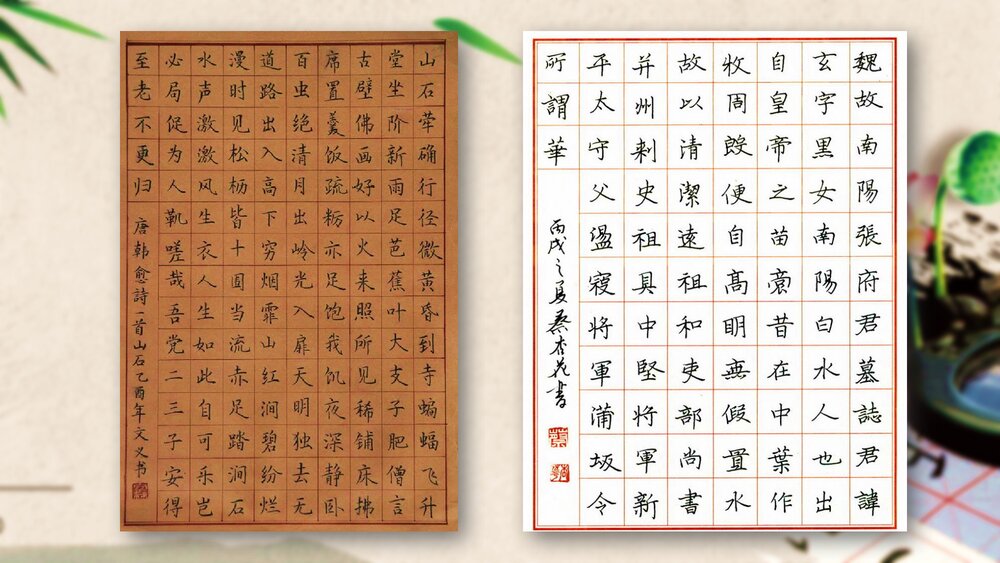 山石荦确行径微黄昏到寺蝙蝠飞升
堂坐阶新雨足芭蕉叶大支子肥僧言
古壁佛画好以火来照所见稀铺床拂
席置羹饭疏粝亦足饱我饥夜深静卧
百虫绝清月出岭光入扉天明独去无
道路出入高下穷烟霏山红涧碧纷烂
漫时见松枥皆十围当流赤足踏涧石
水声激激风生衣人生如此自可乐岂
必局促为人鞿嗟哉吾党二三子安得
至老不更归 唐韩愈詩一首山石乙酉年文义书
魏故南陽張府君墓誌君諱
玄字黑女南陽白水人也出
自皇帝之苗裔昔在中葉作
牧周殷便自高明無假置水
故以清潔遠祖和吏部尚書
并州刺史祖具中堅將軍新
平太守父盪寇將軍蒲坂令
所謂華
丙戌之夏蔡杏花書